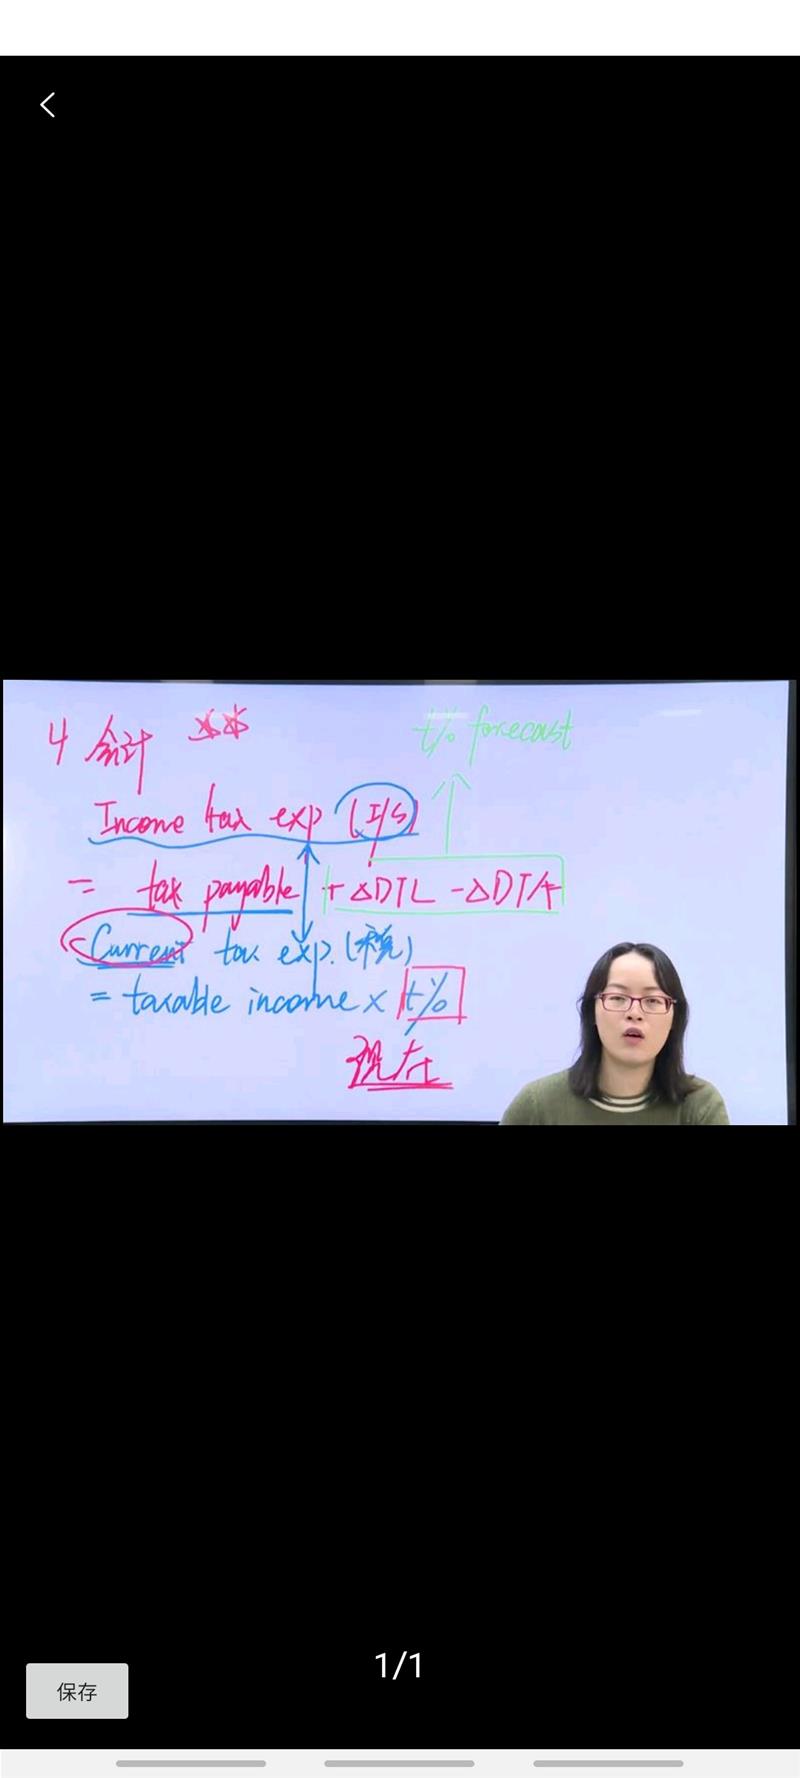 4 会计 **
t% forecast
Income tax exp (I/S)
= tax payable + ΔDTL - ΔDTA
Current tax exp. (税)
= taxable income × t%
现在
1/1
保存